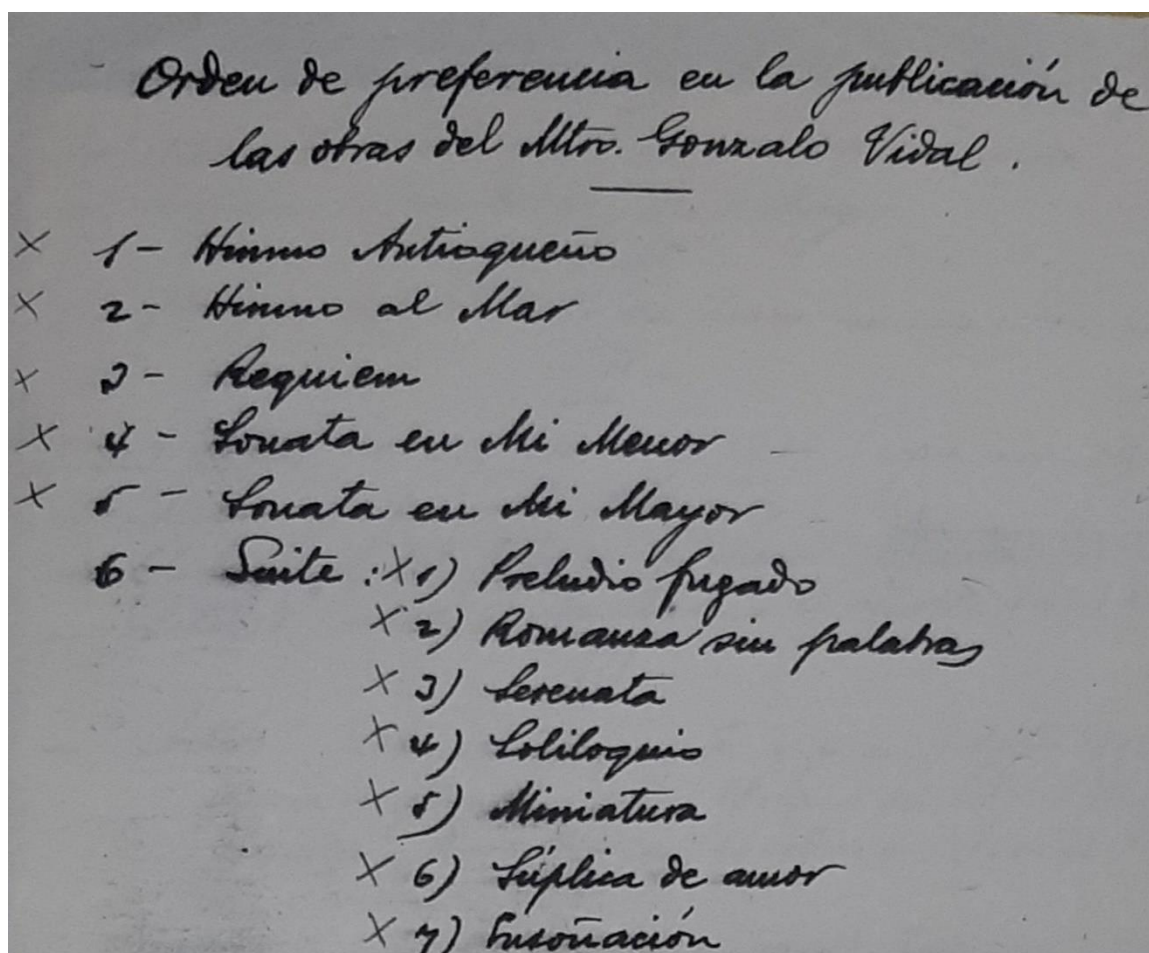 Orden de preferencia en la publicación de
las obras del Mtro. Gonzalo Vidal.
x 1- Himno Antioqueño
x 2- Himno al Mar
x 3- Requiem
x 4- Sonata en Mi Menor
x 5- Sonata en Mi Mayor
6- Suite: x 1) Preludio fugado
x 2) Romanza sin palabras
x 3) Serenata
x 4) Soliloquio
x 5) Miniatura
x 6) Súplica de amor
x 7) Ensoñación